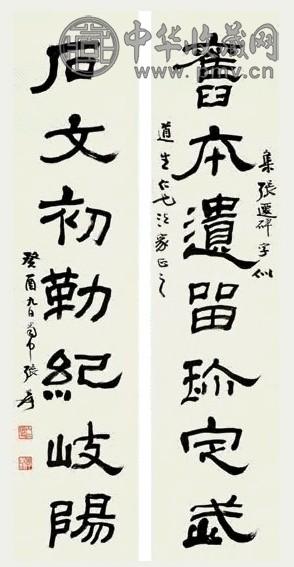 中华收藏网
www.pmv.cn
集張遷碑字似
舊本遺留珍定武
道生仁兄法家正之
石文初勒紀岐陽
癸酉九日 張爰